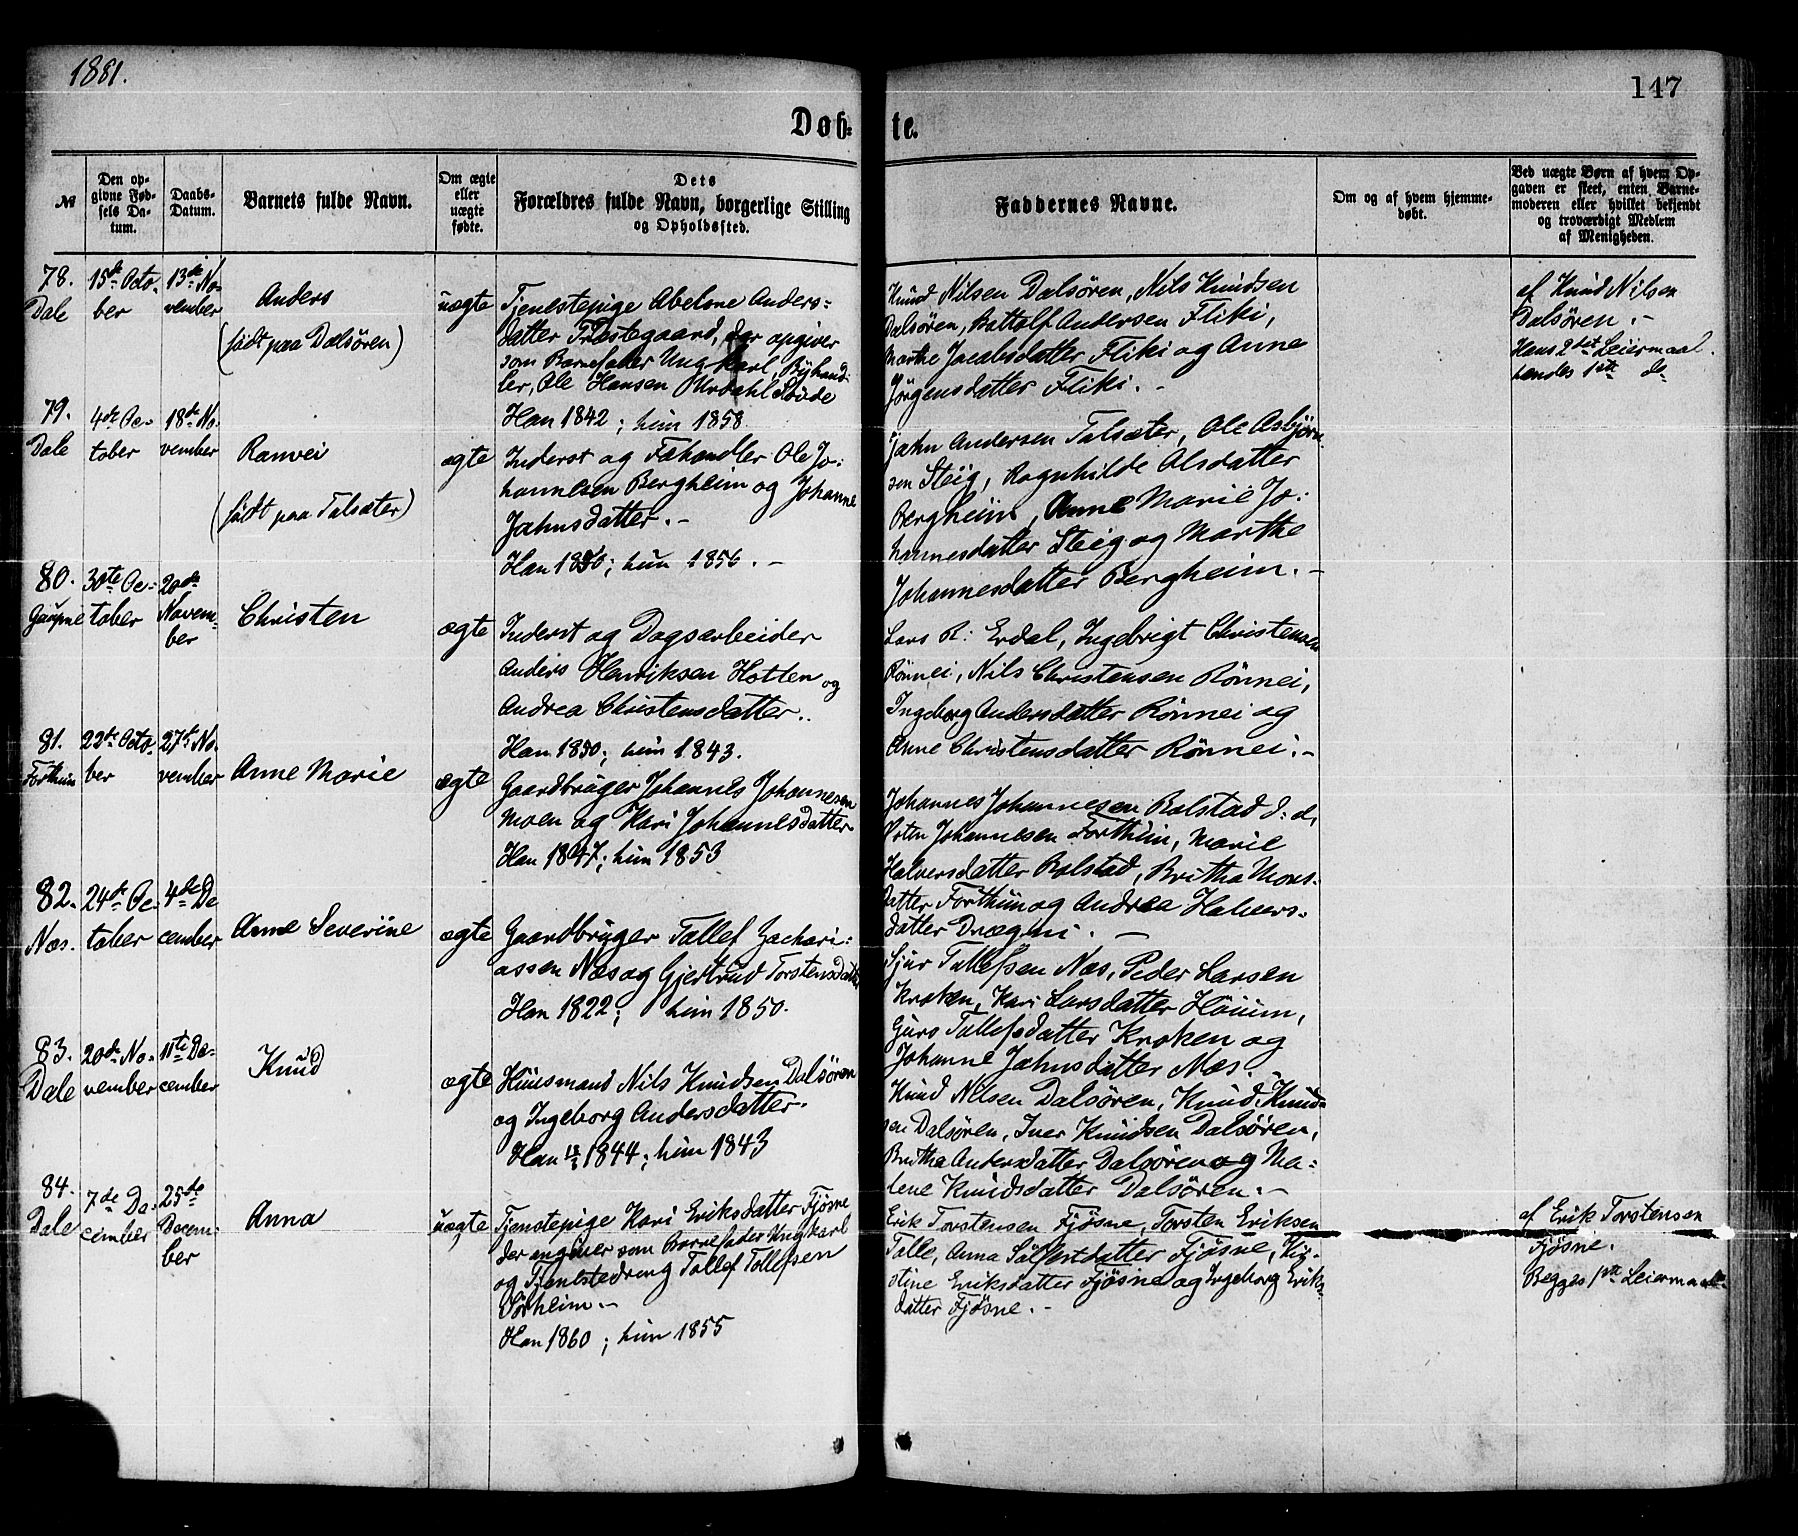 1881.
147
Døb-
te.
№
Den op-
givne Fød-
sels Da-
tum.
Daabs-
Datum.
Barnets fulde Navn.
Om ægte
eller
uægte
fødte.
Dets
Forældres fulde Navn, borgerlige Stilling
og Opholdssted.
Faddernes Navne.
Om og af hvem hjemme-
døbt.
Ved uægte Børn af hvem Op-
gaven er skeet, enten Barne-
moderen eller hvilket bekjendt
og troværdigt Medlem
af Menigheden.
78.
Dale
15de Octo-
ber
13de No-
vember
Anders
(født paa Dalsøren)
uægte
Tjenestepige Abelone Anders-
datter Præstegaard, der opgiver
som Barnefader Ungkarl, Bÿhand-
ler, Ole Hansen Urdahl
Han 1842; hün 1858
Knüd Nilsen Dalsøren, Nils Knüdsen
Dalsøren, Battolf Andersen Fliki,
Marthe Jacobsdatter Fliki og Anne
Jørgensdatter Fliki. -
af Knüd Nilsen
Dalsøren. -
Hans 2det Leiermaal.
hendes 1ste do-
79.
Dale
4de Oc-
tober
18de No-
vember
Ranvei
(født paa Talsæter)
ægte
Inderst og Fæhandler Ole Jo-
hannesen Bergheim og Johanne
Jahnsdatter. -
Han 1850; hün 1856. -
Jahn Andersen Talsæter, Ole Asbjørn-
sen Steig, Ragnhilde Olsdatter
Bergheim, Anne Marie Jo-
hannesdatter Steig og Marthe
Johannesdatter Bergheim. -
80.
Gaüpne
30te Oc-
tober
20de
Novem-
ber
Christen
ægte
Inderst og Dagsarbeider
Anders Henriksen Hotten og
Andrea Christensdatter.
Han 1850; hün 1843.
Lars R: Erdal, Ingebrigt Christensen
Rønnei, Nils Christensen Rønnei,
Ingeborg Andersdatter Rønnei og
Anne Christensdatter Rønnei. -
81.
Forthün
22de Octo-
ber
27de No-
vember
Anne Marie
ægte
Gaardbrüger Johannes Johannesen
Moen og Kari Johannesdatter
Han 1847; hün 1853
Johannes Johannesen Bolstad d. d,
Johannesen Forthün, Marie
Halvorsdatter Bolstad, Britha Mons-
datter Forthün og Andrea Halvors-
datter Drægni. -
82.
Næs.
24de Oc-
tober
4de De
cember
Anne Severine
ægte
Gaardbrüger Tollef Zachari-
assen Næs og Gjertrud Torstensdatter
Han 1822; hün 1850.
Sjur Tollefsen Næs, Peder Larsen
Kroken, Kari Larsdatter Høiüm,
Guro Tollefsdatter Kroken og
Johanne Jahnsdatter Næs. -
83.
Dale
20de No-
vember
11te De-
cember
Knüd
ægte
Hüüsmand Nils Knüdsen Dalsøren
og Ingeborg Andersdatter.
Han 1844; hün 1843
Knüd Nilsen Dalsøren, Knüd Knüd-
sen Dalsøren, Iver Knüdsen Dalsøren,
Britha Andersdatter Dalsøren og Ma-
lene Knüdsdatter Dalsøren. -
84.
Dale
7de De-
cember
25de
Decem-
ber
Anna
uægte
Tjenstepige Kari Eriksdatter Fjøsne
der angiver som Barnefader Ungkarl
og Tjenestedreng Tollef Tollefsen
Han 1860; hün 1855
Erik Torstensen Fjøsne, Torsten Eriksen
Talle, Anna Fjøsne, Kri-
stine Eriksdatter Fjøsne og Ingeborg Eriks-
datter Fjøsne. -
af Erik Torstensen
Fjøsne.
Begges 1ste Leiermaal.